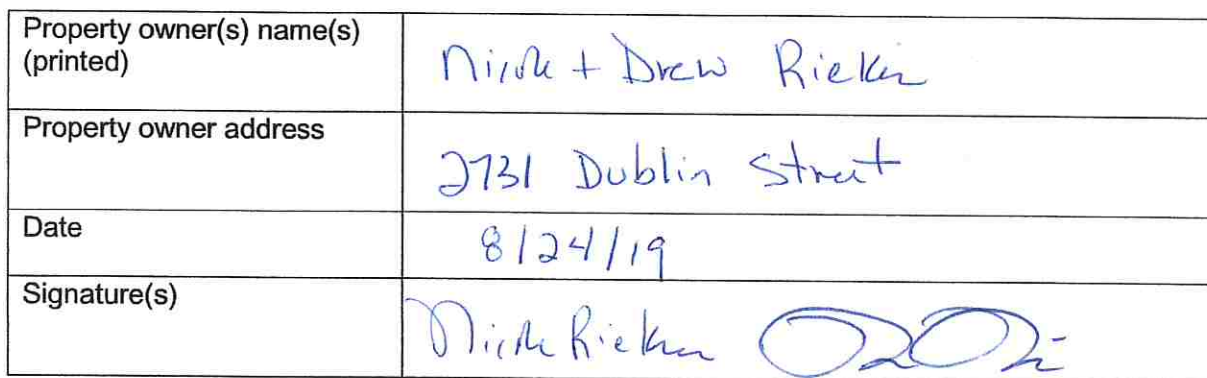 Property owner(s) name(s)
(printed)
Nicole + Drew Rieken
Property owner address
2731 Dublin Street
Date
8/24/19
Signature(s)
Nicole Rieken